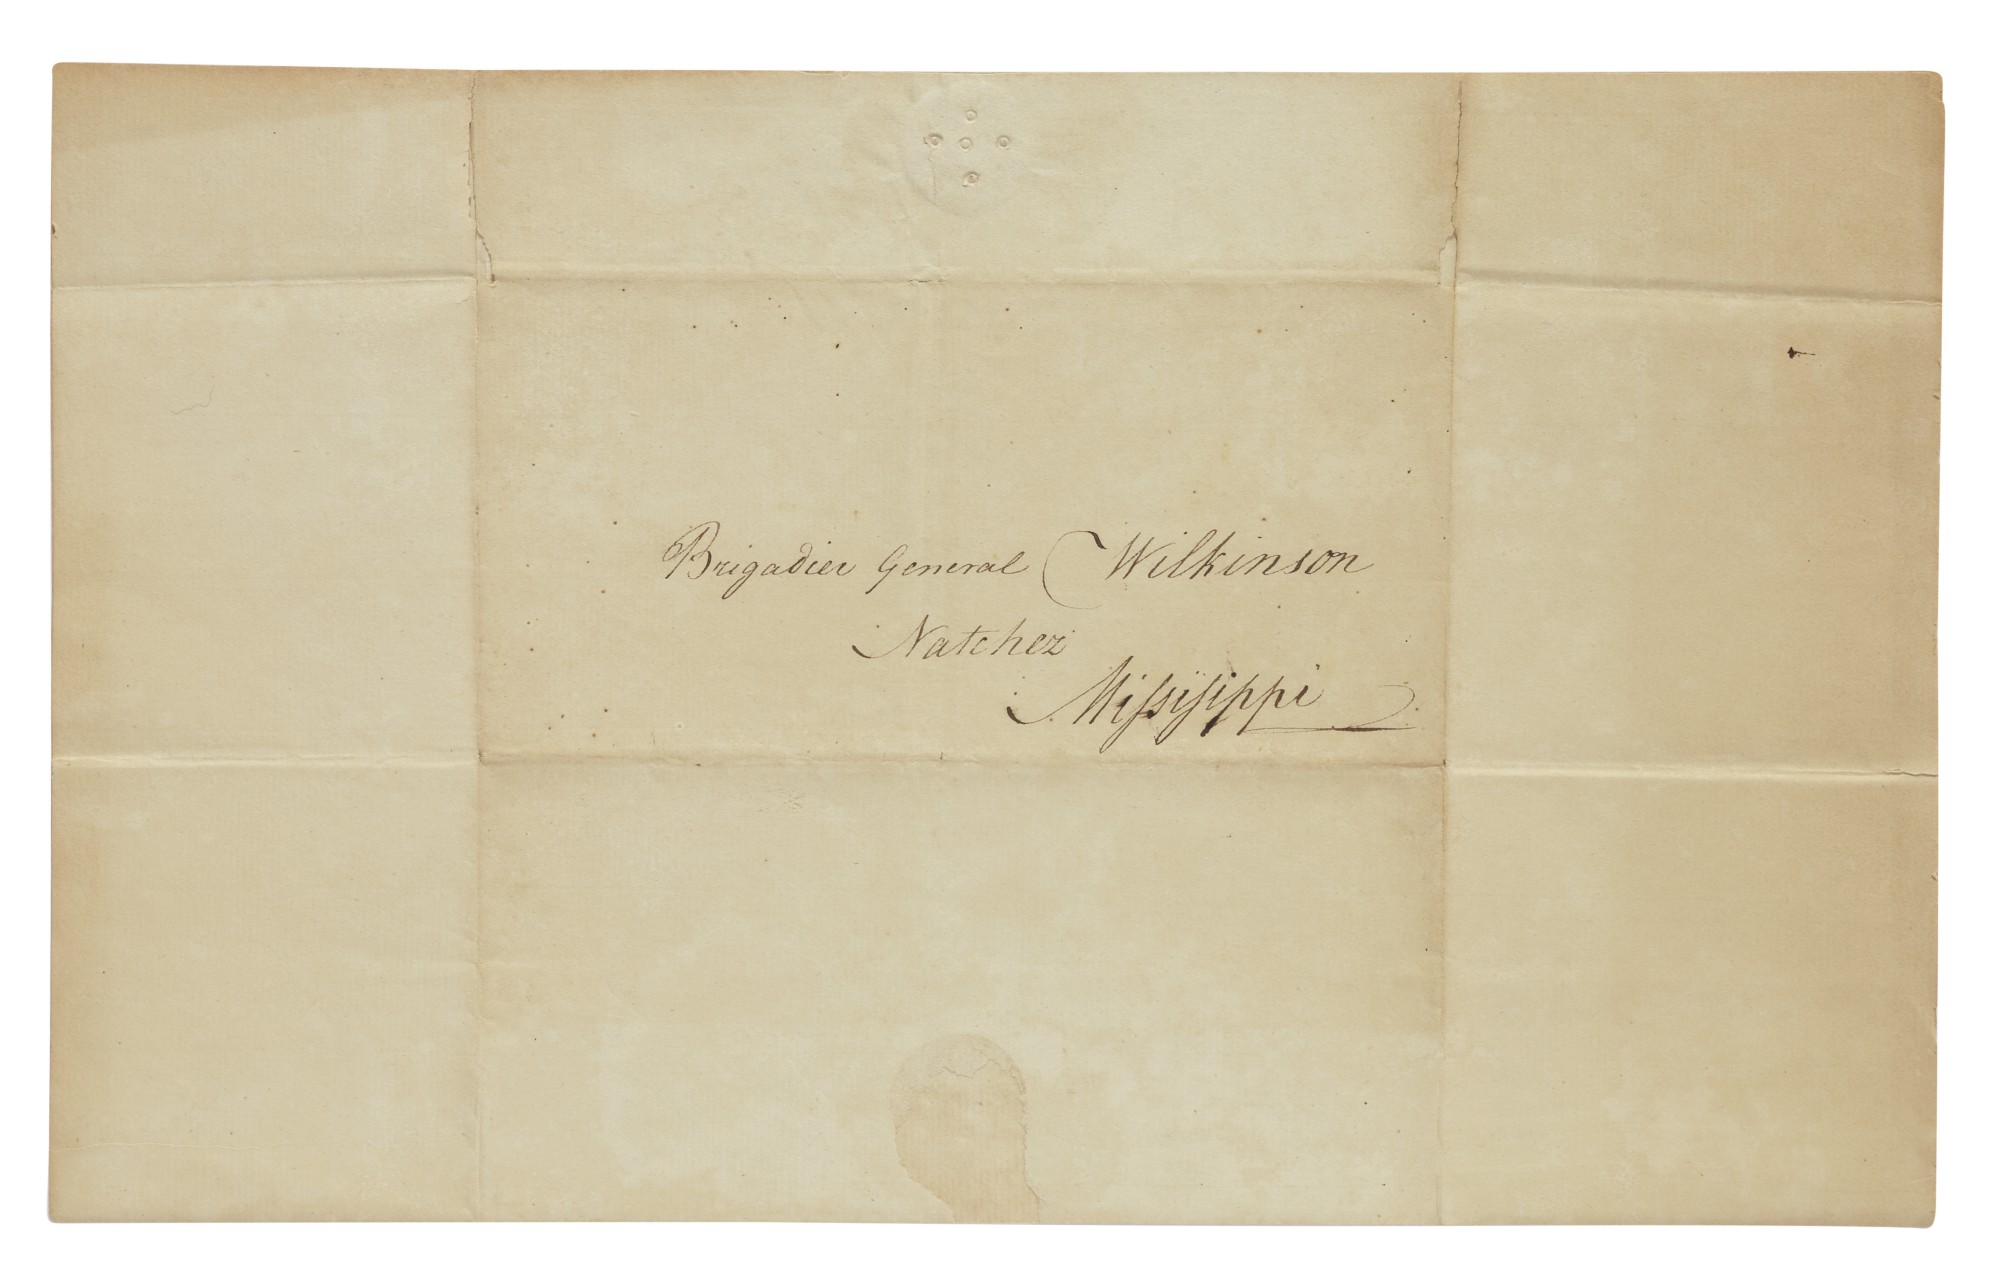 Brigadier General Wilkinson
Natchez
Missisippi